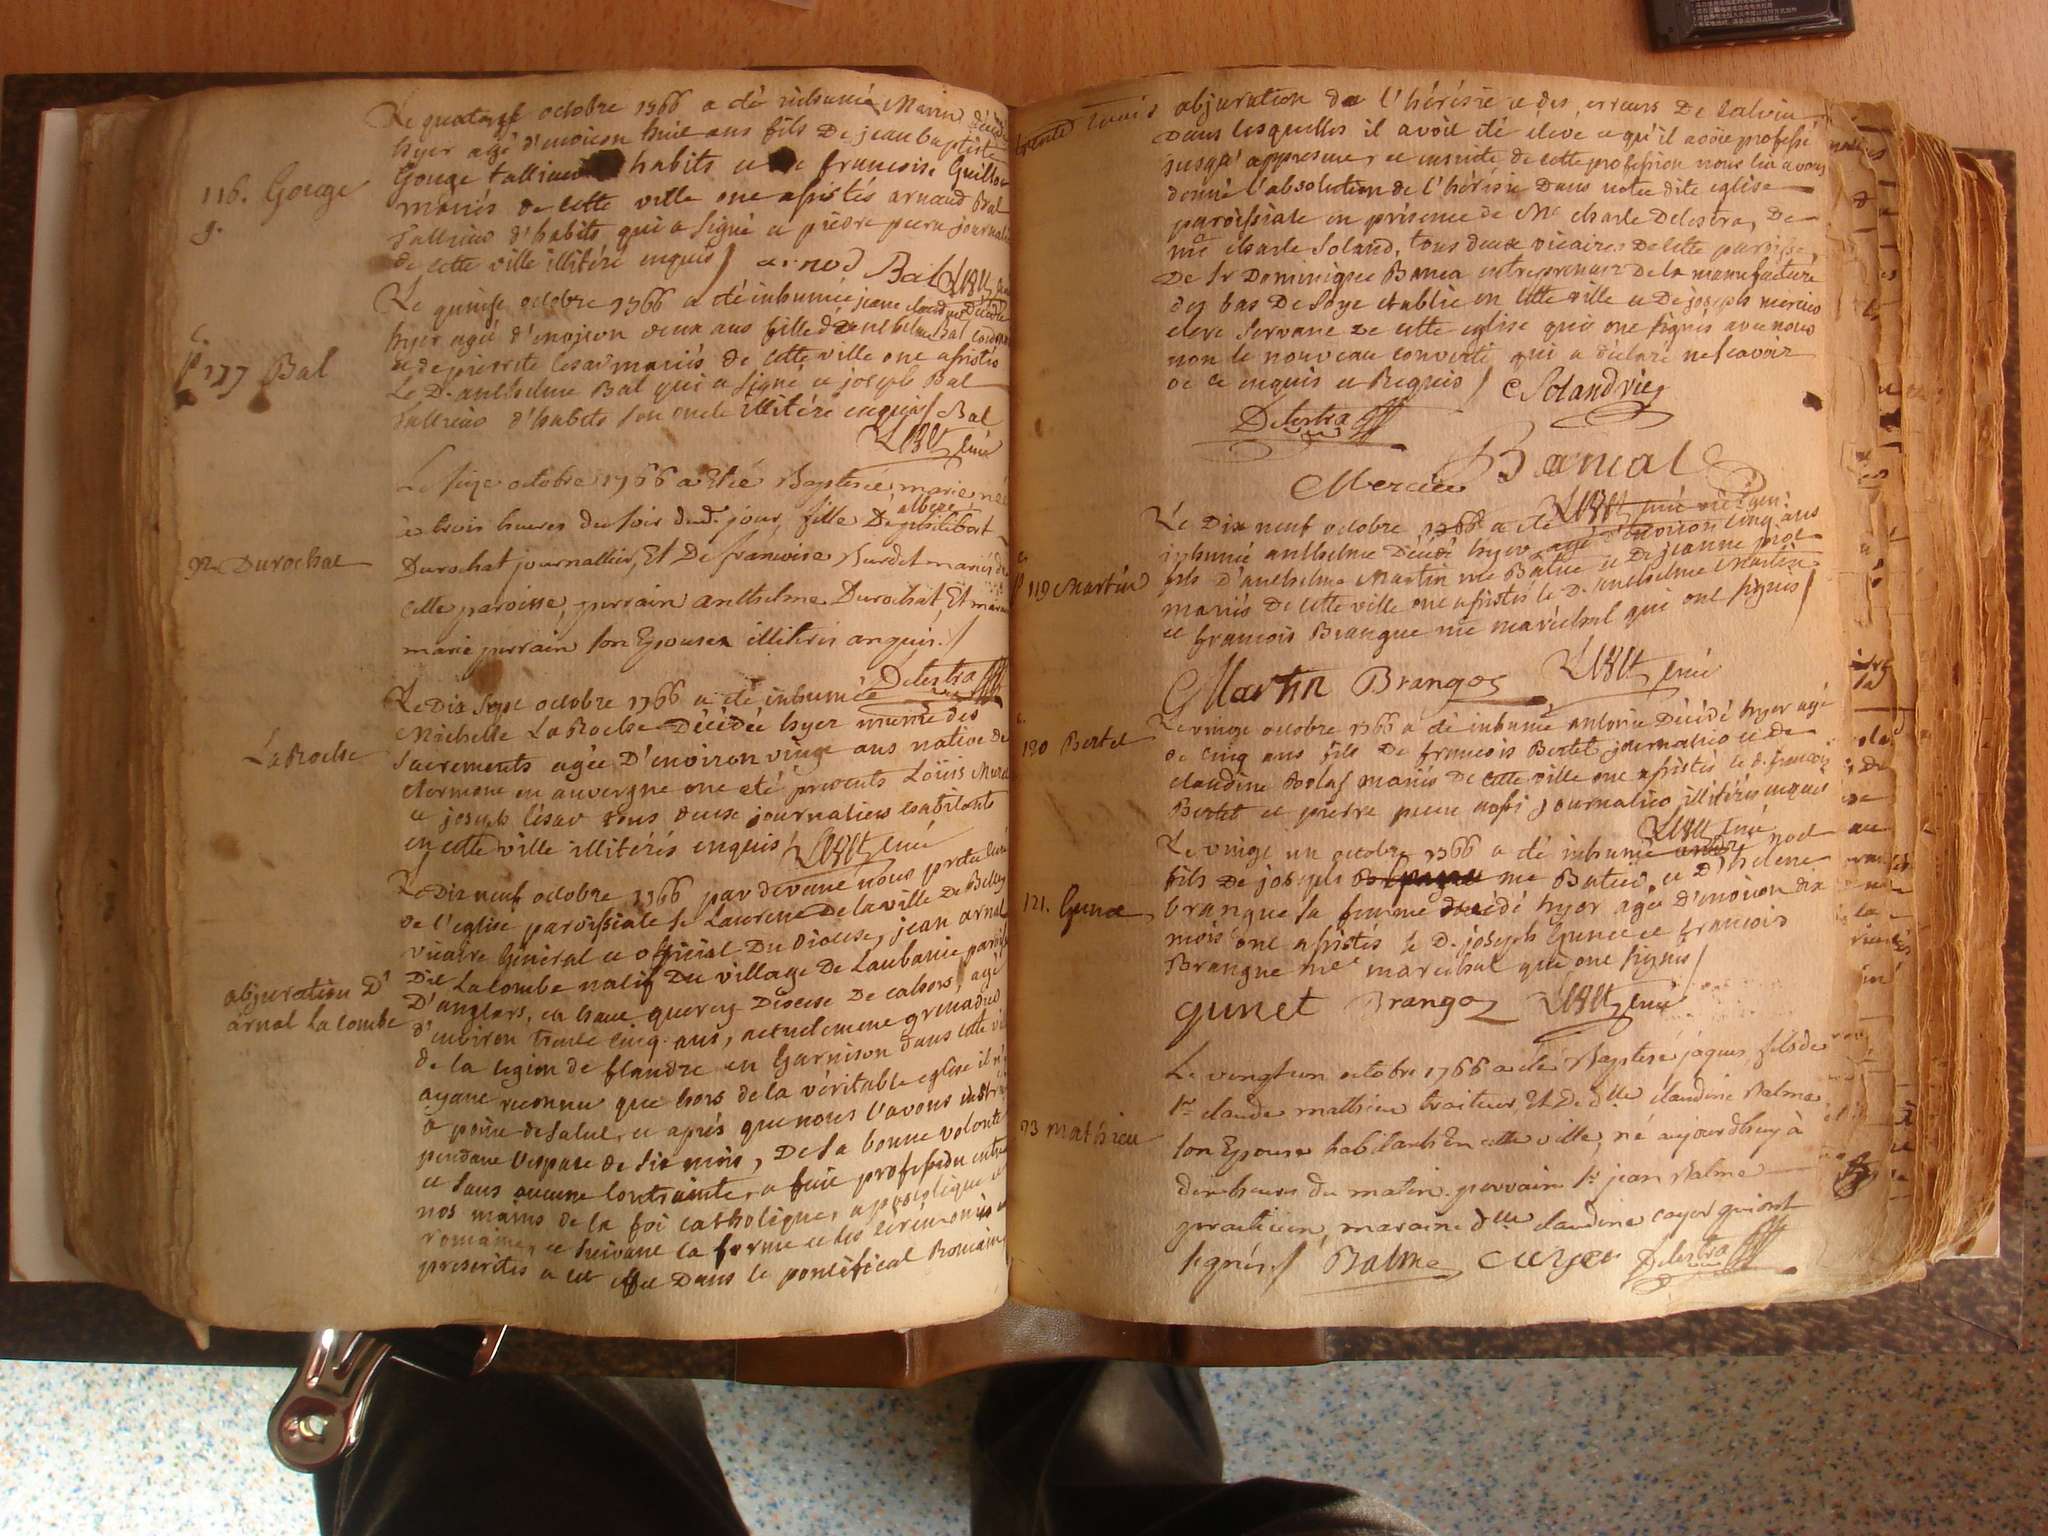 Le quatorze octobre 1766 a été inhumé Marin décédé
hyer agé d'environ huit ans fils De jean baptiste
Gouge tallieur habits et de francoise Guillon
116. Gouge
mariés de cette ville ont assistés arnaud Bal
g.
tallieur d'habits qui a signé et pierre journalier
de cette ville illitéré enquis / arnod Bal
Le quinze octobre 1766 a été inhumée jeane Décédée
hyer agée d'environ deux ans fille d'anthelme Bal
117 Bal
et de pierrette cesar mariés de cette ville ont assistés
Le D. anthelme Bal qui a signé et joseph Bal
tallieur d'habits son oncle illitéré enquis / Bal
curé
Le seize octobre 1766 a Eté Baptisée marie née
à trois heures du soir dud. jour, fille De philibert
albert
92 Durochat
Durochat journallier, Et De francoise Burdet mariés de
cette paroisse, parrain anthelme Durochat, Et maraine
marie perrain son Epouse illiterés enquis. /
Delestra
Le Dix sept octobre 1766 a été inhumée
Michelle LaRoche Décédée hyer munie des
LaRoche
sacrements agée D'environ vingt ans native de
clermont en auvergne ont été présents Loüis
et joseph césar tous deux journaliers habitants
en cette ville illitérés enquis / curé
Le Dix neuf octobre 1766 par devant nous pretre curé
de l'eglise paroissiale St Laurent De la ville De Belley
vicaire Général et official Du Diocese, jean arnal
Dit Lacombe natif Du village De Laubanie paroisse
abjuration D'
arnal La combe
D'anglars, en haut quercy Diocese De cahors, agé
d'environ trente cinq ans, actuelement grenadier
de la legion de flandre en Garnison dans cette ville
ayant reconnu que hors de la véritable eglise il n'y
a point de salut, et aprés que nous l'avons instruit
pendant l'espace de six mois, De sa bonne volonté
et sans aucune contrainte, a fait profession entre
nos mains de la foi catholique, apostolique et
romaine, et suivant la forme et les cérémonies
prescrites a cet effet Dans le pontifical Romain
trente trois
abjuration de l'hérésie et des erreurs De Calvin
Dans lesquelles il avoit été élevé et qu'il avoit professé
jusqu'a present, et ensuite de cette profession nous lui avons
donné l'absolution de l'hérésie Dans notre dite eglise
paroissiale en présence de Me charle Delestra, De
me charle Soland, tous deux vicaires De cette paroisse,
De Sr Dominique Bancal entrepreneur De la manufacture
des bas De Soye etablie en cette ville et De joseph mercier
clerc servant De cette eglise qui ont signés avec nous
non le nouveau converti qui a déclaré ne scavoir
de ce enquis et Requis / C Soland vic
Delestra
Mercier Bancal
curé vic. gen.
Le Dix neuf octobre 1766 a été
inhumé anthelme Décédé hyer agé d'environ cinq ans
119 Martin
fils D'anthelme Martin me Batier et De jeanne
mariés De cette ville ont assistés le D. anthelme Martin
et francois Brangue me maréchal qui ont signés /
Martin Brangoz curé
Le vingt octobre 1766 a été inhumé antoine Décédé hyer agé
120 Bertet
de cinq ans fils De francois Bertet journalier et de
claudine mariés De cette ville ont assistés le d. francois
Bertet et pierre journalier illitérés enquis
curé
Le vingt un octobre 1766 a été inhumé noel
fils De joseph me Batier et D'helene
121. Gunet
brangue sa femme décédé hyer agé d'environ dix
mois ont assistés le D. joseph Gunet et francois
Brangue me marechal qui ont signés /
gunet Brangoz curé
Le vingtun octobre 1766 a eté Baptisé jaques fils de
Sr claude mathieu traiteur, Et De dlle claudine Balme
93 mathieu
son Epouse habitants En cette ville, né aujourdhuy à
dix heures du matin. parrain Sr jean Balme
praticien, maraine dlle claudine cayer qui ont
signés. / Balme Delestra